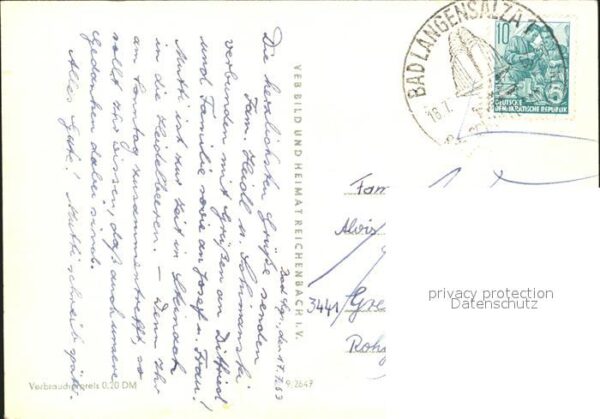 BAD LANGENSALZA
10
DEUTSCHE
DEMOKRATISCHE REPUBLIK
Bad Lgs., den 17.7.63
Die herzlichsten Grüße senden
Fam. Heidl u.
verbunden mit Grüßen an
und Familie sowie an Josef u. Frau!
Mutti ist zur Zeit in Steinach
in die Heidelbeeren. – Wenn Ihr
am Sonntag zusammentrefft, so
sollt Ihr wissen, daß auch unsere
Gedanken dabei sind.
Alles Gute! Mutti schreibt später.
VEB BILD UND HEIMAT REICHENBACH I.V.
Fam
Alois
3441 Gre
Roh
privacy protection
Datenschutz
Verbraucherpreis 0,20 DM
9/2649